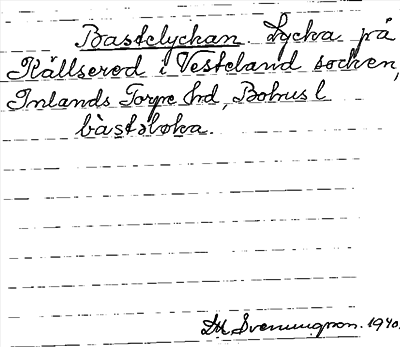 Bastelyckan Lycka på
Källseröd i Vesteland socken,
Inlands Torpe hrd, Bohusl
bàstəlöka.
M. Svenungson. 1940.